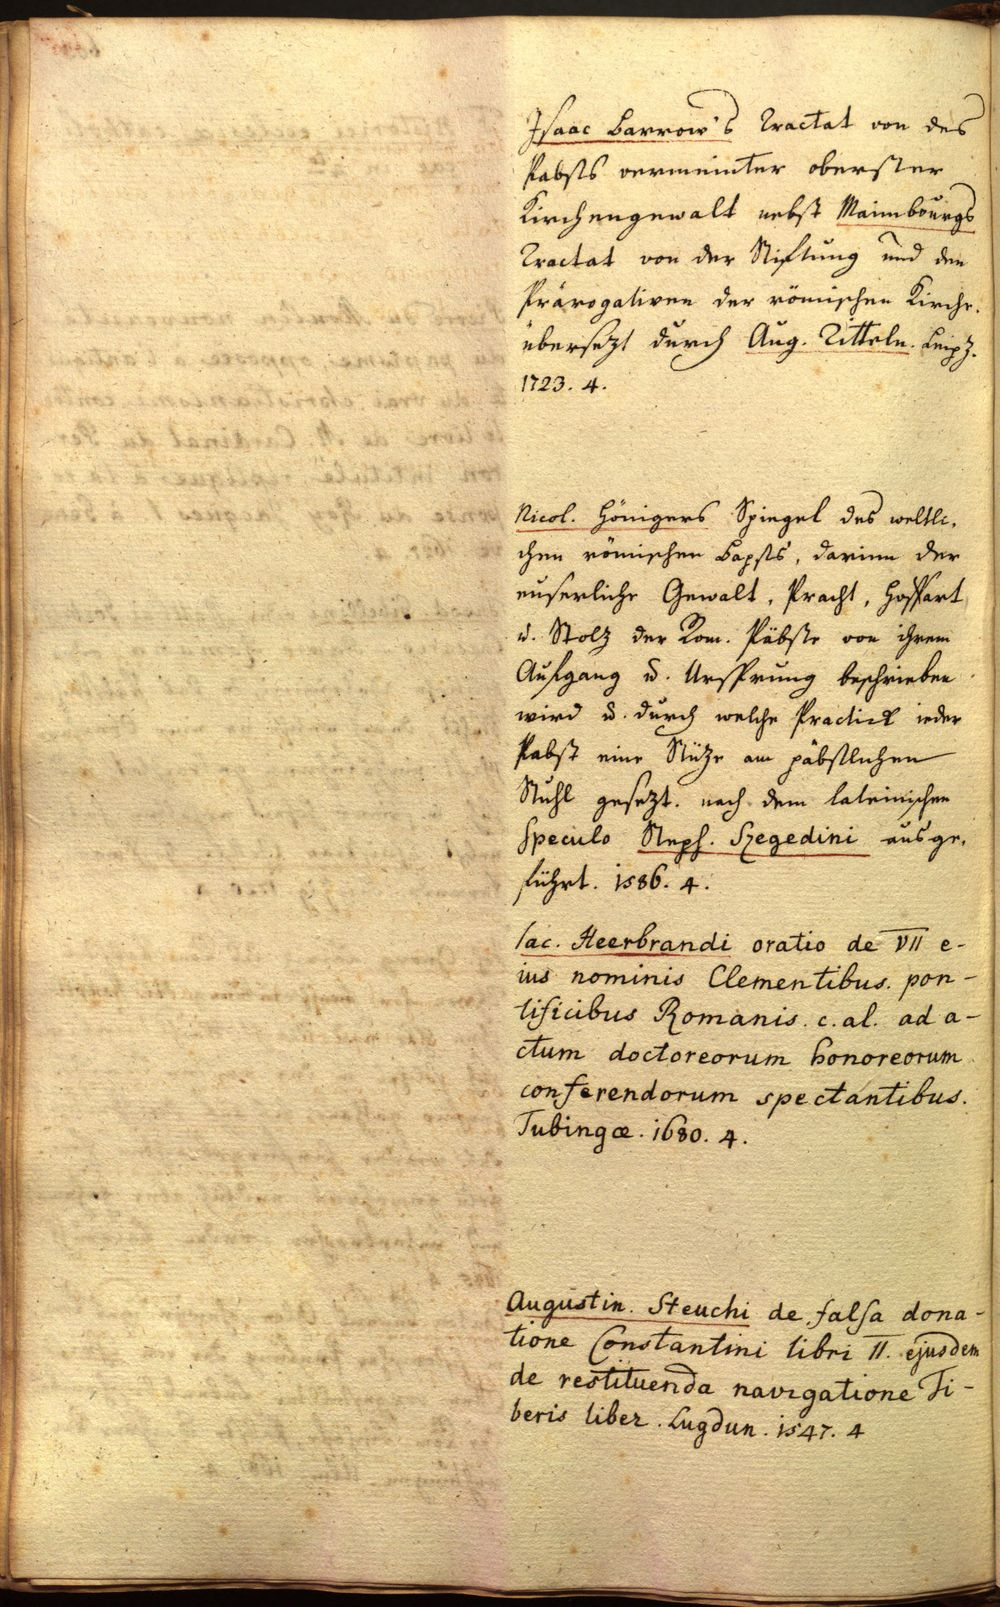 Isaac Barrow's Tractat von des
Pabsts vermeinter oberster
Kirchengewalt nebst Maimbourgs
Tractat von der Stiftung und den
Prärogativen der römischen Kirche.
übersezt durch Aug. Titteln. Leipz.
1723. 4.
Nicol. Hönigers Spiegel des weltli-
chen römischen Bapsts, darinn der
euserliche Gewalt, Pracht, Hoffart
u. Stolz der Rom. Päbste von ihrem
Aufgang u. Ursprung beschrieben
wird u. durch welche Practick ieder
Pabst eine Stüze am päbstlichen
Stuhl gesezt. nach dem lateinischen
Speculo Steph. Szegedini ausge-
führt. 1586. 4.
Iac. Heerbrandi oratio de VII e-
ius nominis Clementibus. pon-
tificibus Romanis. c. al. ad a-
ctum doctoreorum honoreorum
conferendorum spectantibus.
Tubingæ. 1680. 4.
Augustin. Steuchi de falsa dona-
tione Constantini libri II. ejusdem
de restituenda navigatione Ti-
beris liber. Lugdun. 1547. 4